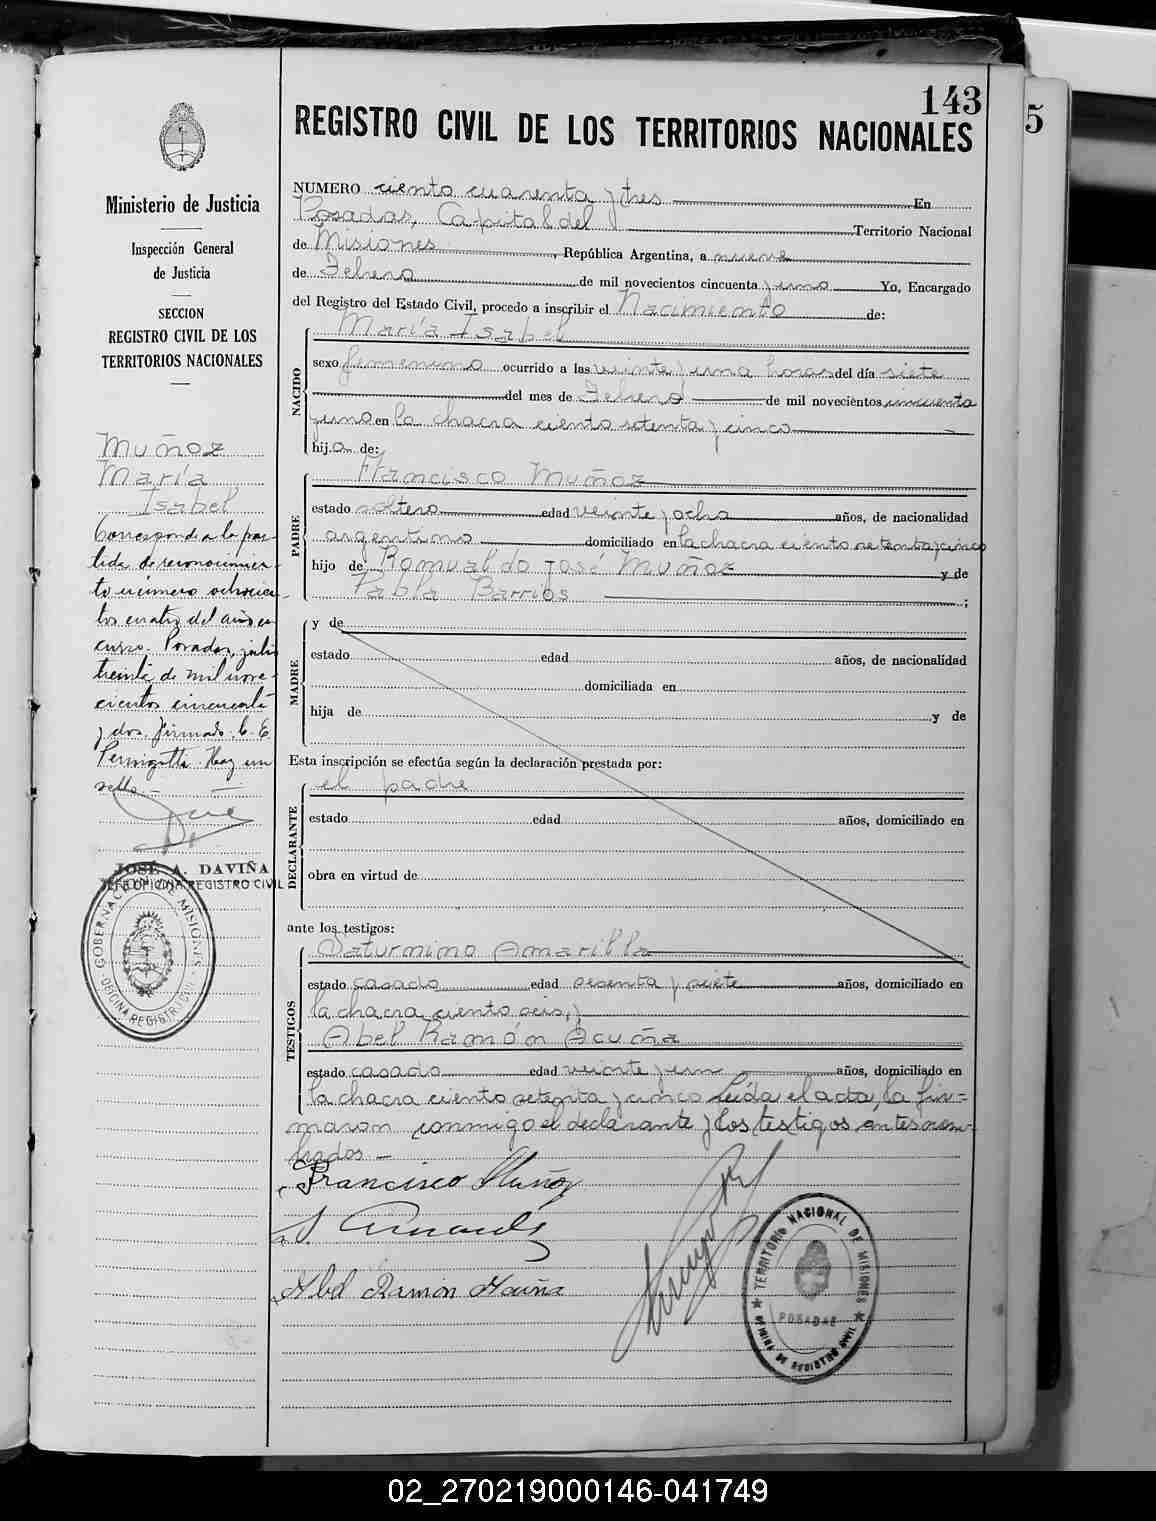 143
5
REGISTRO CIVIL DE LOS TERRITORIOS NACIONALES
Ministerio de Justicia
Inspección General
de Justicia
SECCION
REGISTRO CIVIL DE LOS
TERRITORIOS NACIONALES
Muñoz
María
Isabel
Corresponde a la par-
tida de reconocimien-
to número ochocien-
tos cuatro del año en
curso. Posadas, julio
treinta de mil nove-
cientos cincuenta
y dos. Firmado. C. E.
Hay un
sello.-
JOSÉ A. DAVIÑA
JEFE OFICINA REGISTRO CIVIL
GOBERNACION DE MISIONES
OFICINA REGISTRO CIVIL
NUMERO ciento cuarenta y tres En
Posadas, Capital del Territorio Nacional
de Misiones, República Argentina, a nueve
de Febrero de mil novecientos cincuenta y uno Yo, Encargado
del Registro del Estado Civil, procedo a inscribir el Nacimiento de:
NACIDO
María Isabel
sexo femenino ocurrido a las veinte y una horas del día siete
del mes de Febrero de mil novecientos cincuenta
y uno en la chacra ciento setenta y cinco
hija de:
PADRE
Francisco Muñoz
estado soltero edad veinte y ocho años, de nacionalidad
argentino domiciliado en la chacra ciento setenta y cinco
hijo de Romualdo José Muñoz y de
Pabla Barrios ;
MADRE
y de
estado edad años, de nacionalidad
domiciliada en
hija de y de
Esta inscripción se efectúa según la declaración prestada por:
DECLARANTE
el padre
estado edad años, domiciliado en
obra en virtud de
ante los testigos:
TESTIGOS
Saturnino Amarilla
estado casado edad sesenta y siete años, domiciliado en
la chacra ciento seis, y
Abel Ramón Acuña
estado casado edad veinte y un años, domiciliado en
la chacra ciento setenta y cinco Leída el acta, la fir=
maron conmigo el declarante y los testigos antes nom-
brados -
Francisco Muñoz
Abel Ramón Acuña
TERRITORIO NACIONAL DE MISIONES
POSADAS
OFICINA DE REGISTRO CIVIL
02_270219000146-041749